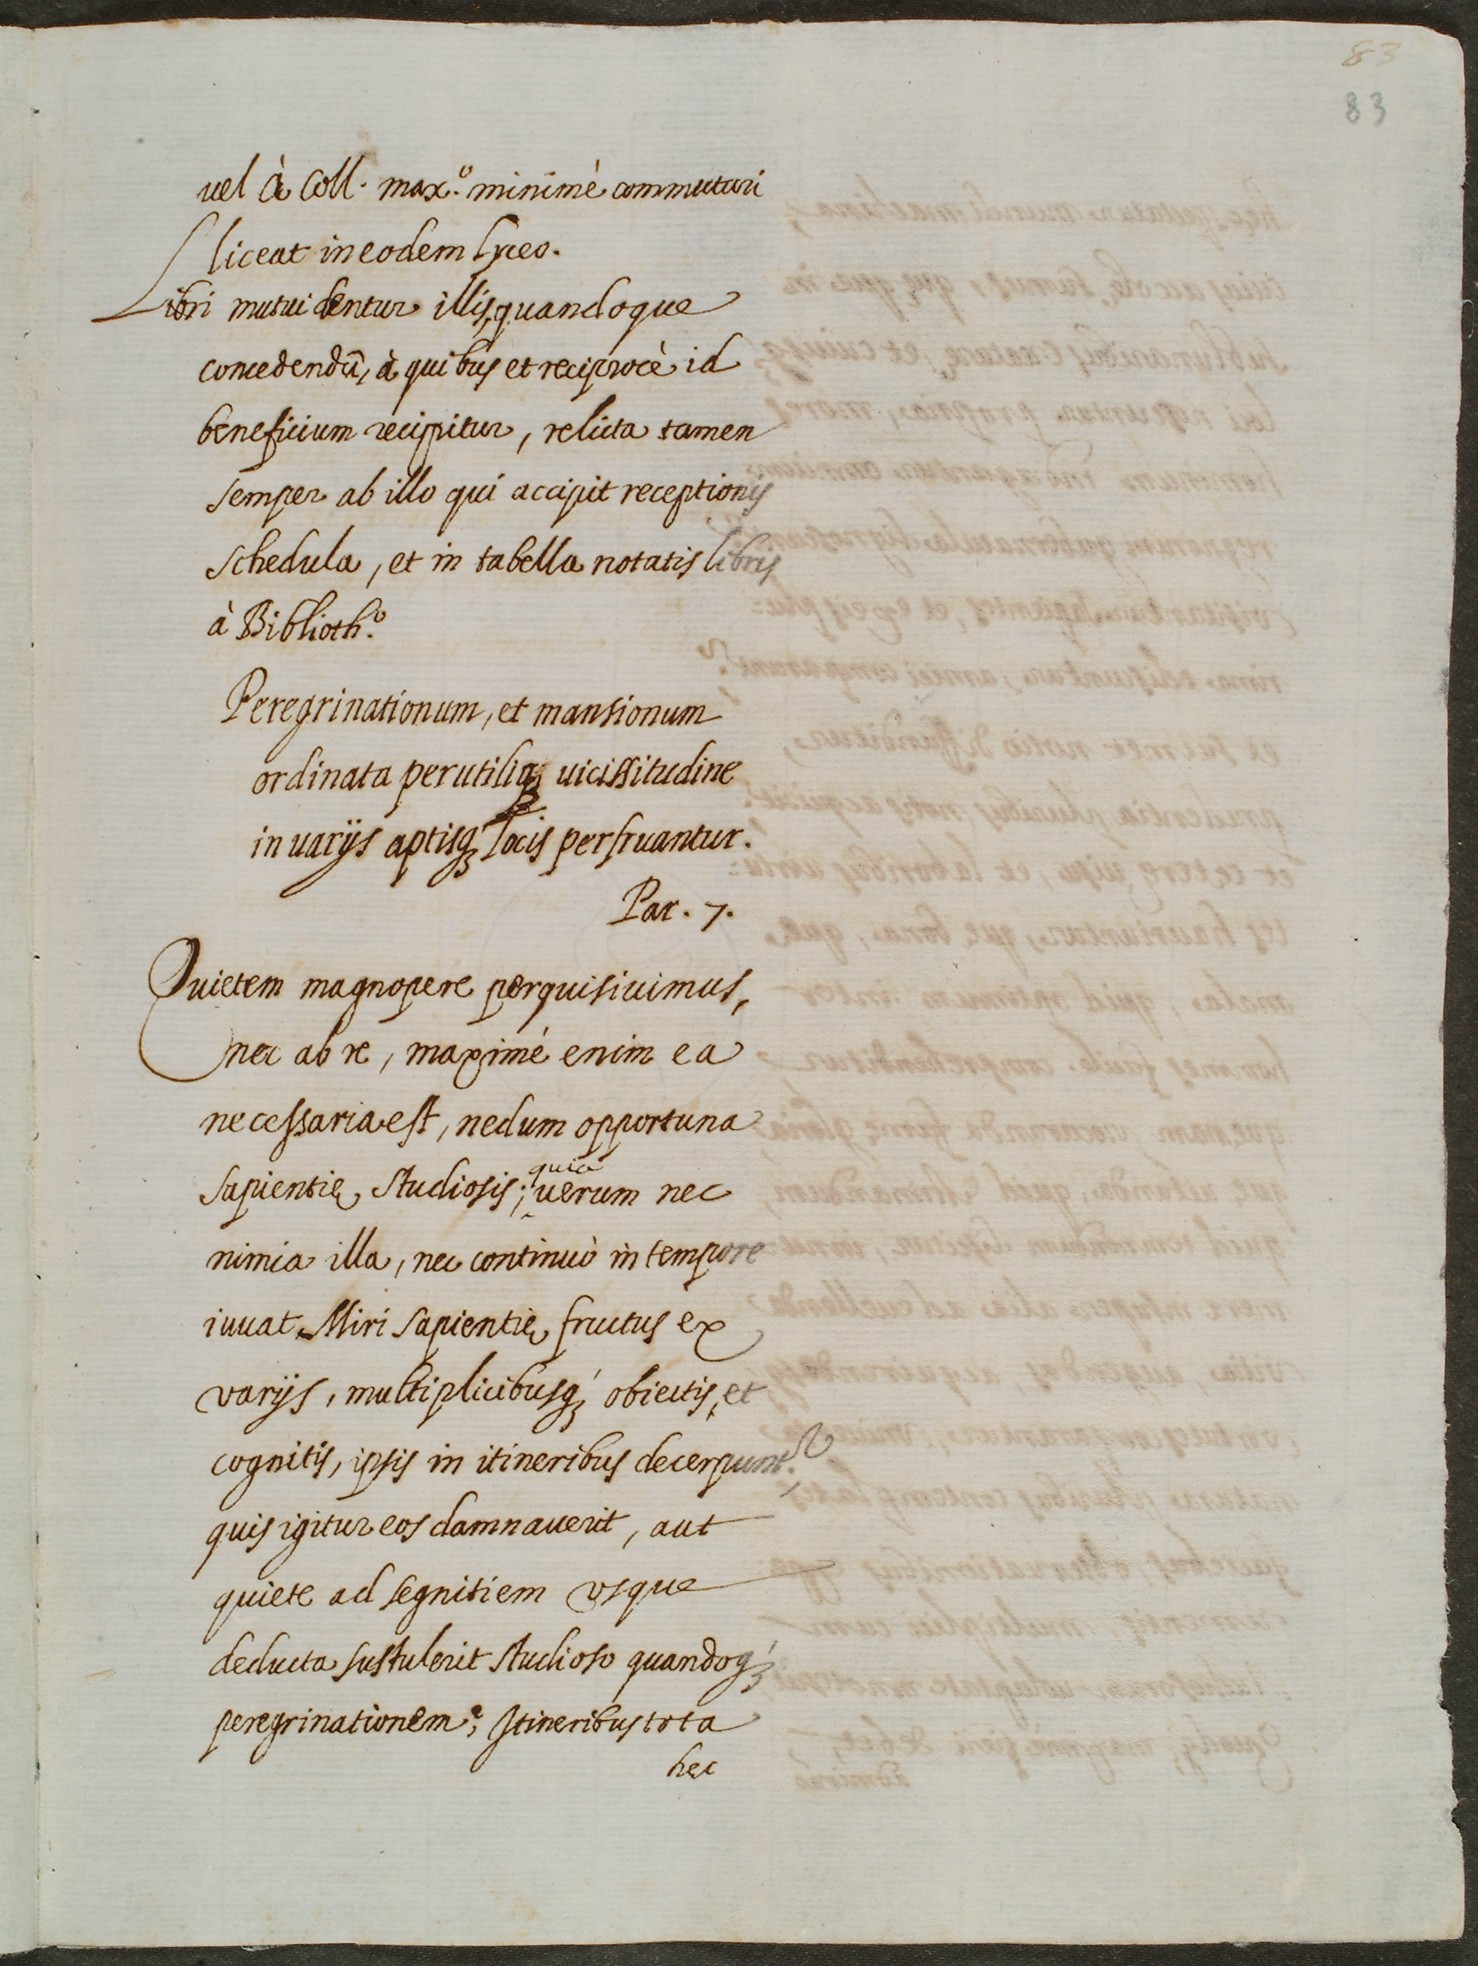 83
83
uel à Coll. max.º minimè commutari
liceat in eodem Lyceo.
Libri mutui dentur illis, quandoque
concedendũ, à quibus et reciprocè id
beneficium recipitur, relicta tamen
semper ab illo qui accipit receptionis
schedula, et in tabella notatis libris
à Biblioth.º
Peregrinationum, et mansionum
ordinata perutiliq́ʒ uicissitudine
in uarijs aptisqʒ locis perfruantur.
Par. 7.
Quietem magnopere perquisiuimus,
nec ab re, maximè enim ea
necessaria est, nedum opportuna
sapientię studiosis; uerum nec
quia
nimia illa, nec continuò in tempore
iuuat. Miri sapientię fructus ex
varijs, multiplicibusq́ʒ obiectis, et
cognitis, ipsis in itineribus decerpunt.ᵘʳ
quis igitur eos damnauerit, aut
quiete ad segnitiem vsque
deducta sustulerit studioso quandoq́ʒ
peregrinationem? Itineribus tota
hęc